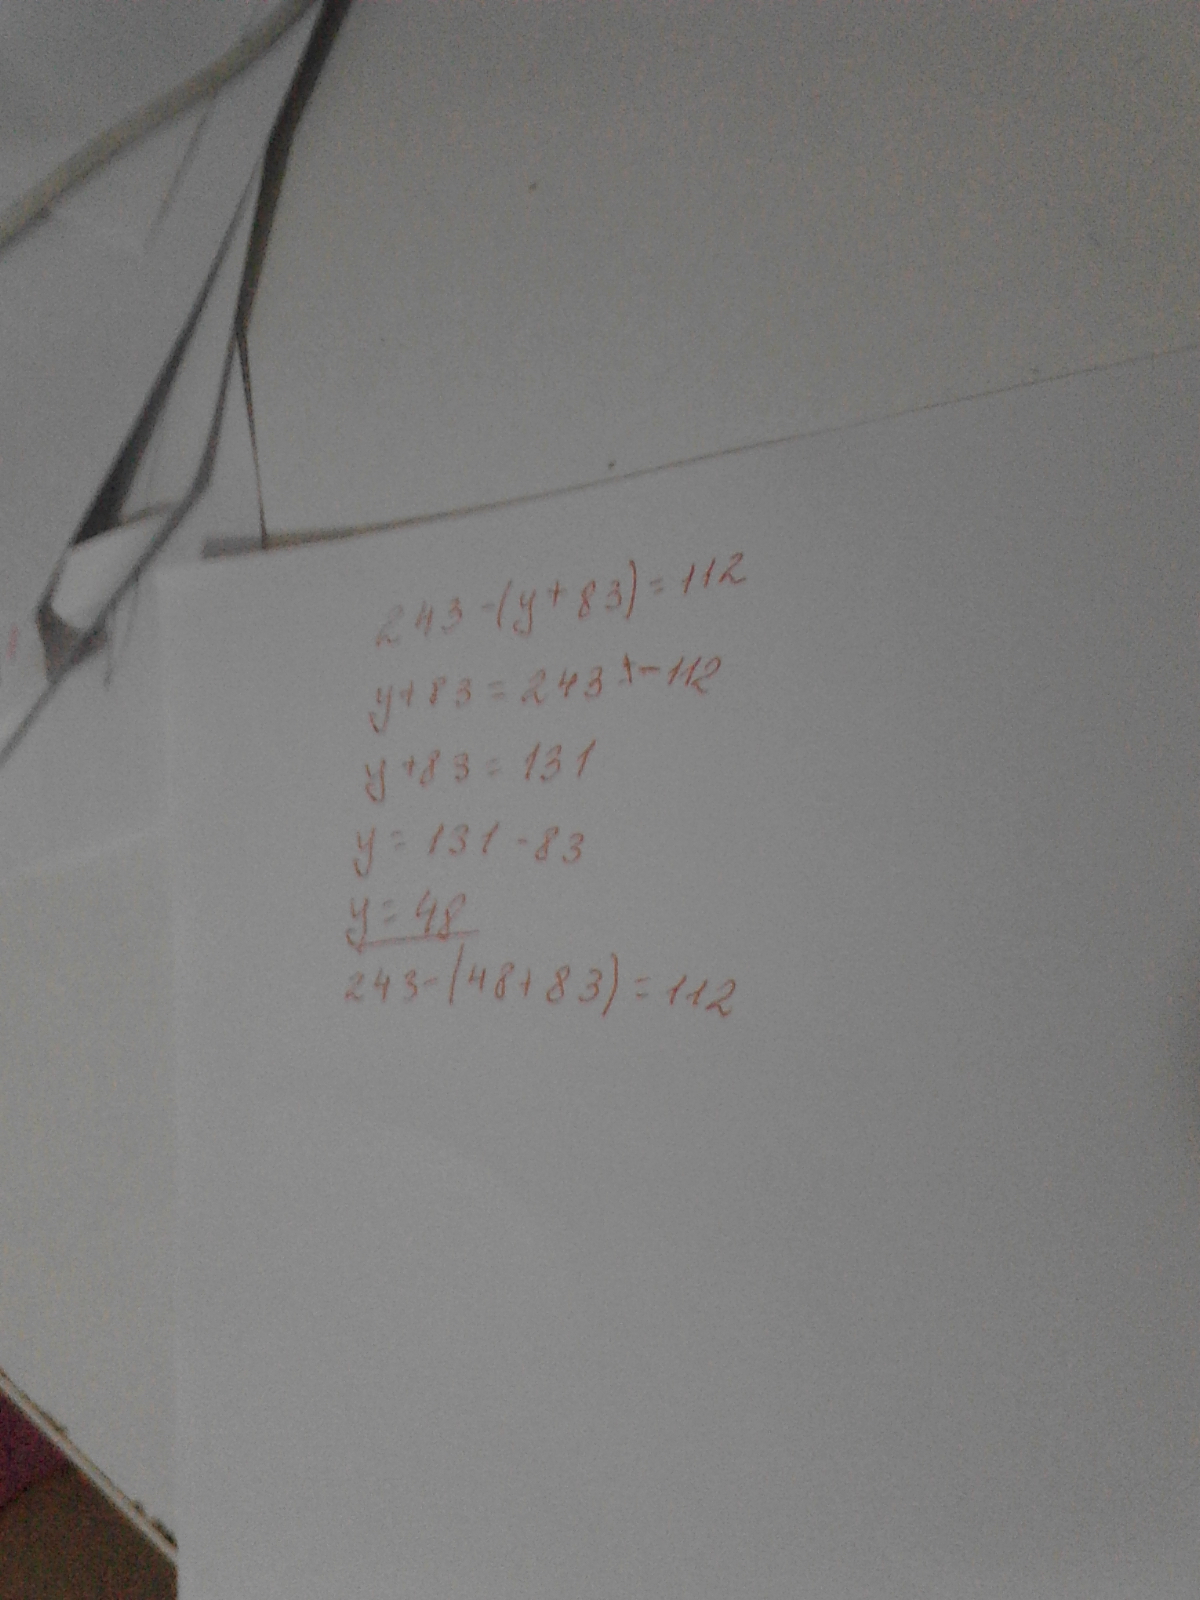 243-(y+83)=112
y+83=243-112
y+83=131
y=131-83
y=48
243-(48+83)=112